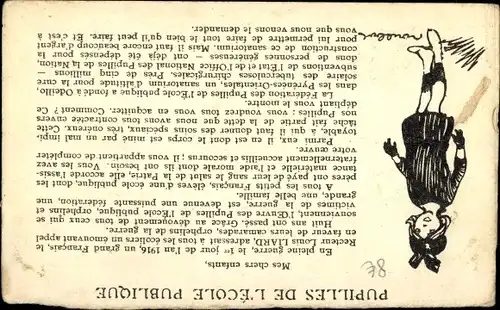 PUPILLES DE L'ÉCOLE PUBLIQUE
Mes chers enfants,
En pleine guerre, le 1er jour de l'an 1916, un grand Français, le
Recteur Louis LIARD, adressait à tous les écoliers un émouvant appel
en faveur de leurs camarades, orphelins de la guerre.
Huit ans ont passé. Grâce au dévouement de tous ceux qui se
soutiennent, l'Œuvre des Pupilles de l'Ecole publique, orphelins et
victimes de la guerre, est devenue une puissante fédération, une
grande, une belle famille.
A tous les petits Français élèves d'une école publique, dont les
pères ont payé de leur sang le salut de la Patrie, elle accorde l'assis-
tance matérielle et l'aide morale dont ils ont besoin. Vous les avez
fraternellement accueillis et secourus ; il vous appartient de compléter
votre œuvre.
Parmi eux, il en est dont le corps est miné par un mal impi-
toyable, à qui il faut donner des soins spéciaux, très onéreux. Cette
tâche fait partie de la dette que nous avons tous contractée envers
nos Pupilles ; vous voudrez tous vous en acquitter. Comment ? Ce
dépliant vous le montre.
La Fédération des Pupilles de l'Ecole publique a fondé à Odeillo,
dans les Pyrénées-Orientales, un sanatorium d'altitude pour la cure
solaire des tuberculoses chirurgicales. Près de cinq millions —
subventions de l'Etat et de l'Office National des Pupilles de la Nation,
dons de personnes généreuses — ont déjà été dépensés pour la
construction de ce sanatorium. Mais il faut encore beaucoup d'argent
pour lui permettre de faire tout le bien qu'il peut faire. Et c'est à
vous que nous venons le demander.
€8